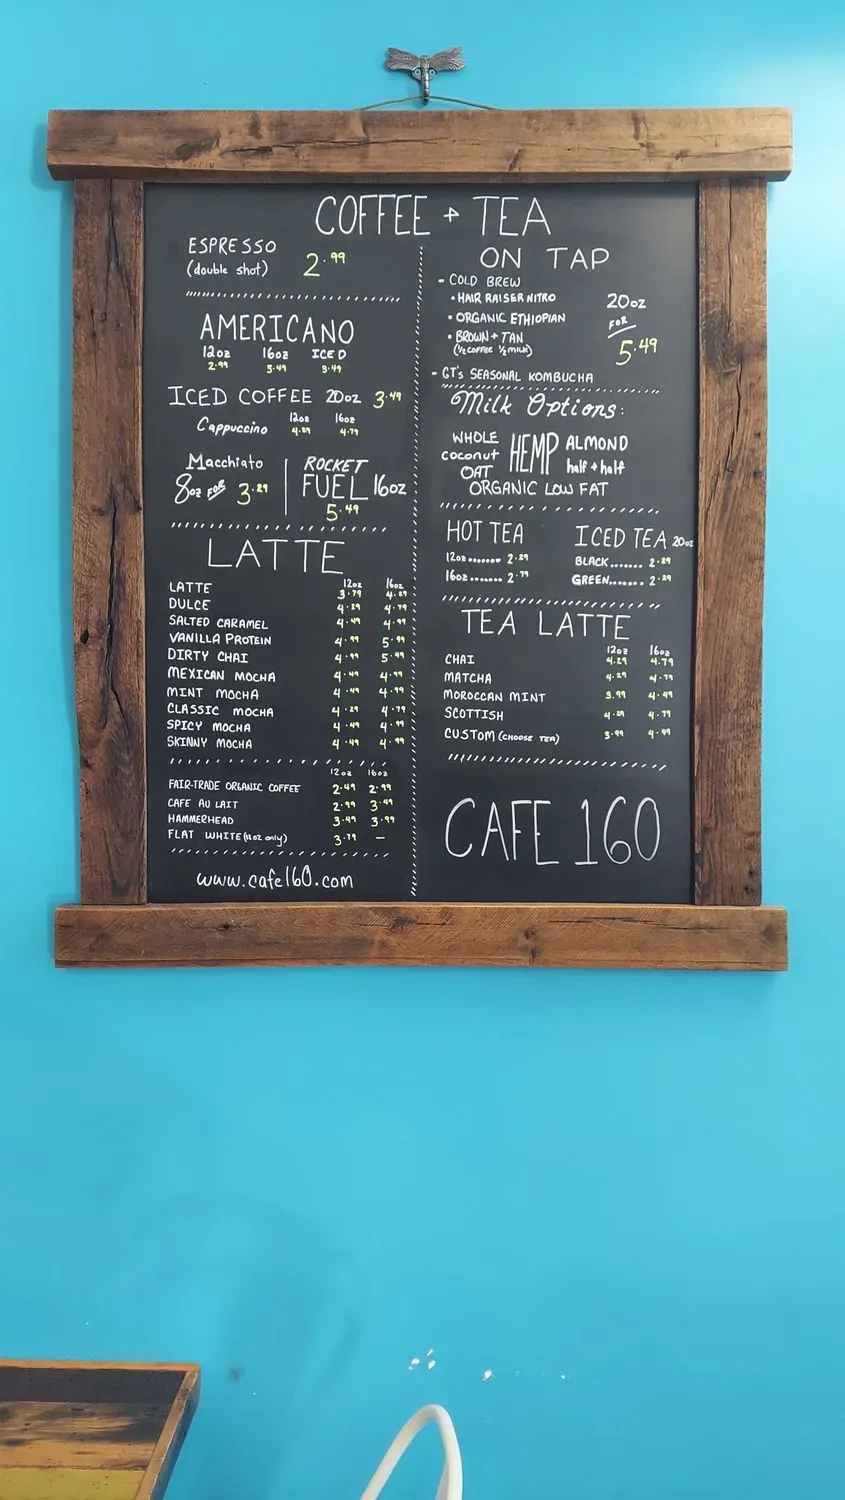 COFFEE + TEA
ESPRESSO
(double shot) 2.99
AMERICANO
12oz 16oz ICED
2.99 3.49 3.49
ICED COFFEE 20oz 3.49
Cappuccino 12oz 16oz
4.29 4.79
Macchiato
8oz FOR 3.29
ROCKET
FUEL 16oz
5.49
LATTE
12oz 16oz
LATTE 3.79 4.29
DULCE 4.29 4.79
SALTED CARAMEL 4.49 4.99
VANILLA PROTEIN 4.99 5.99
DIRTY CHAI 4.99 5.49
MEXICAN MOCHA 4.49 4.99
MINT MOCHA 4.49 4.99
CLASSIC MOCHA 4.29 4.79
SPICY MOCHA 4.49 4.99
SKINNY MOCHA 4.49 4.99
12oz 16oz
FAIR-TRADE ORGANIC COFFEE 2.49 2.99
CAFE AU LAIT 2.99 3.49
HAMMERHEAD 3.49 3.99
FLAT WHITE (12oz only) 3.79 —
www.cafe160.com
ON TAP
- COLD BREW
• HAIR RAISER NITRO
• ORGANIC ETHIOPIAN
• BROWN + TAN
(½ COFFEE ½ MILK)
20oz
FOR
5.49
- GT's SEASONAL KOMBUCHA
Milk Options:
WHOLE HEMP ALMOND
coconut half + half
OAT
ORGANIC LOW FAT
HOT TEA
12oz....... 2.29
16oz....... 2.79
ICED TEA 20oz
BLACK....... 2.29
GREEN....... 2.29
TEA LATTE
12oz 16oz
CHAI 4.29 4.79
MATCHA 4.29 4.79
MOROCCAN MINT 3.99 4.49
SCOTTISH 4.29 4.79
CUSTOM (CHOOSE TEA) 3.99 4.49
CAFE 160